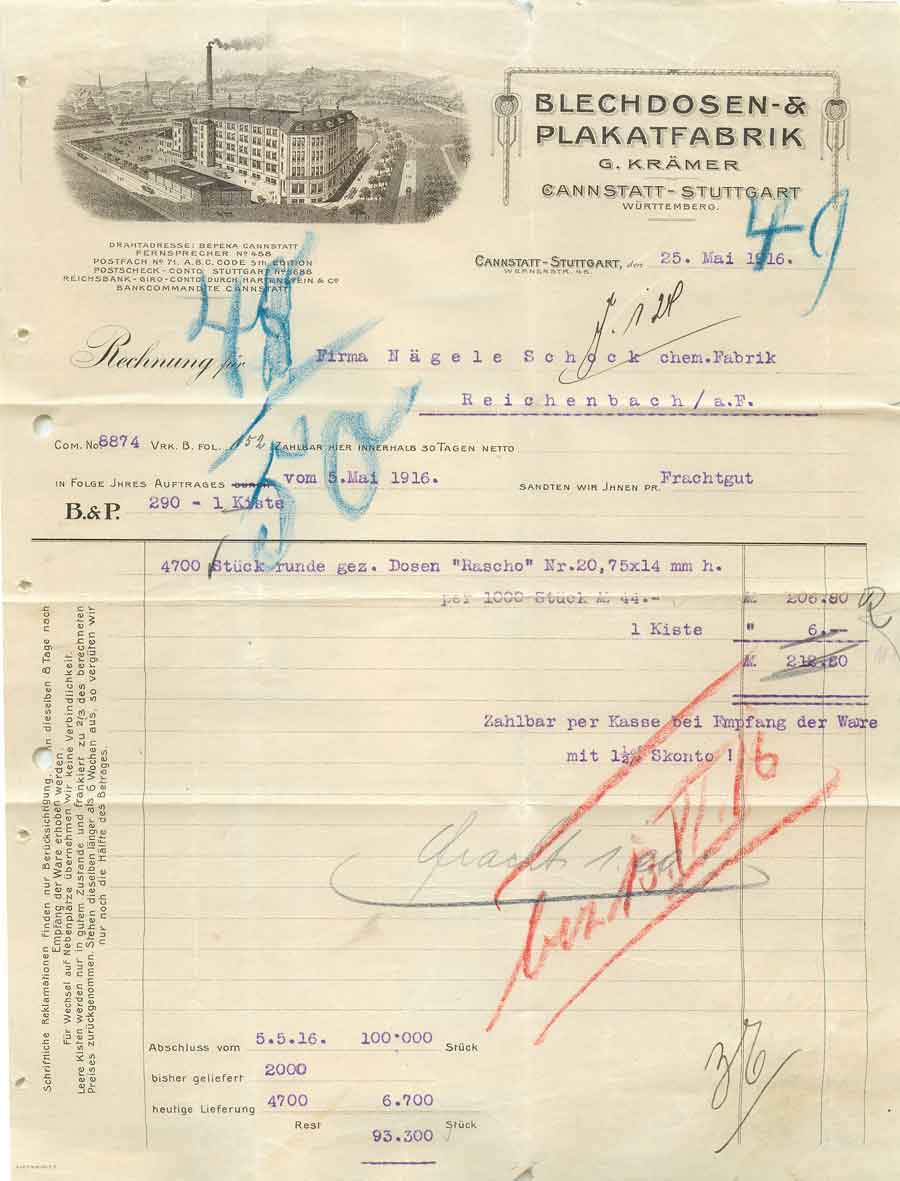 BLECHDOSEN-&
PLAKATFABRIK
G. KRÄMER
CANNSTATT-STUTTGART
WÜRTTEMBERG.
DRAHTADRESSE: BEPEKA CANNSTATT
FERNSPRECHER No 488
POSTFACH No 71. A.B.C. CODE 5th EDITION
POSTSCHECK-CONTO STUTTGART No 3688
REICHSBANK-GIRO-CONTO DURCH HARTENSTEIN & Co
BANKCOMMANDITE CANNSTATT
49
CANNSTATT-STUTTGART, den 25. Mai 1916.
WERNERSTR. 46.
48
Rechnung für Firma Nägele Schock chem.Fabrik
Reichenbach/a.F.
50
COM. No 8874 VRK. B. FOL. 152 ZAHLBAR HIER INNERHALB 30 TAGEN NETTO
IN FOLGE JHRES AUFTRAGES DURCH vom 5.Mai 1916. SANDTEN WIR JHNEN PR. Frachtgut
B.&P. 290 - 1 Kiste
4700 Stück runde gez. Dosen "Rascho" Nr.20,75x14 mm h.
per 1000 Stück M 44.- M 206.80
1 Kiste " 6.--
M 212.80
Zahlbar per Kasse bei Empfang der Ware
mit 1½% Skonto !
Schriftliche Reklamationen finden nur Berücksichtigung, dieselben 8 Tage nach
Empfang der Ware erhoben werden.
Für Wechsel auf Nebenplätze übernehmen wir keine Verbindlichkeit.
Leere Kisten werden nur in gutem Zustande und frankiert zu 2/3 des berechneten
Preises zurückgenommen. Stehen dieselben länger als 6 Wochen aus, so vergüten wir
nur noch die Hälfte des Betrages.
Abschluss vom 5.5.16. 100·000 Stück
bisher geliefert 2000
heutige Lieferung 4700 6.700
Rest 93.300 Stück